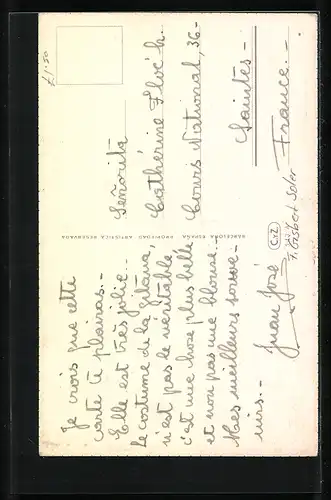 Je crois que cette
carte te plairas.-
Elle est très jolie.-
Le costume de la gitana,
n'est pas le veritable
c'est une chose plus belle
et non pas une blouse.-
Mes meilleurs souve-
nirs.-
Juan José
BARCELONA ESPAÑA PROPIEDAD ARTISTICA RESERVADA
C.yZ.
£1.50
Señorita
Catherine
Cours National, 36-
Saintes-
France.-